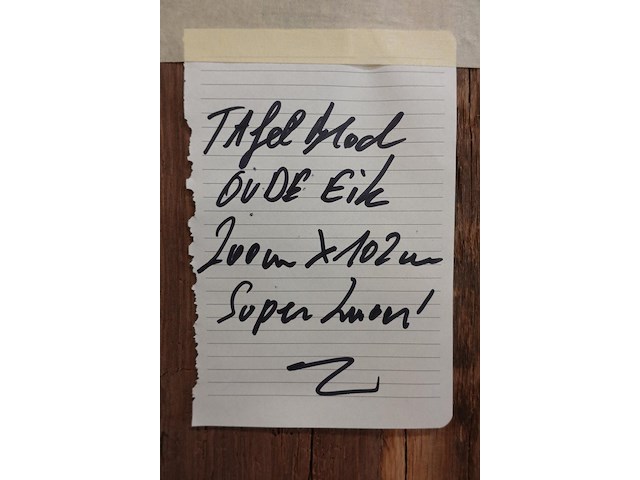 TAfel blad
OUDE Eik
200cm X 102cm
Super zwaar!